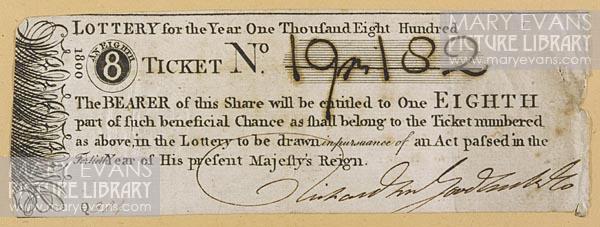 LOTTERY for the Year One Thouſand Eight Hundred
1800
AN EIGHTH
8
TICKET No. 19m182
The BEARER of this Share will be entitled to One EIGHTH
part of ſuch beneficial Chance as ſhall belong to the Ticket numbered
as above, in the Lottery to be drawn in pursuance of an Act paſſed in the
Fortieth Year of His preſent Majeſty's Reign.
Richard Goodluck & Co
MARY EVANS
PICTURE LIBRARY
www.maryevans.com
MARY EVANS
PICTURE LIBRARY
www.maryevans.com
MARY EVANS
PICTURE LIBRARY
www.maryevans.com